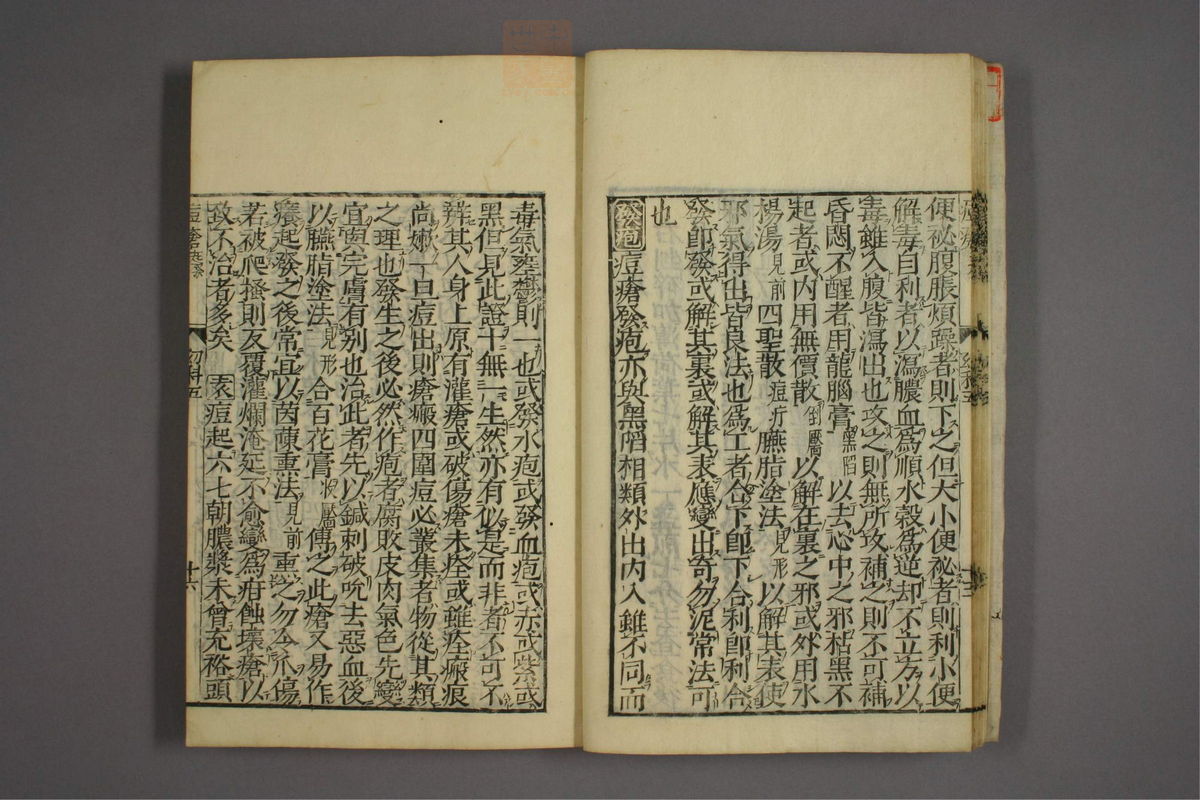 便祕腹脹煩躁者則下之但大小便祕者則利小便
解毒自利者以瀉膿血爲順水穀爲逆却不立方以
毒雖入腹皆瀉出也攻之則無所攻補之則不可補
昏悶不醒者用龍腦膏黑陷以去心中之邪枯黑不
起者或内用無價散倒黶以解在裏之邪或外用水
楊湯見前四聖散痘疔臙脂塗法見形以解其表使
邪氣得出皆良法也爲工者合下卽下合利卽利合
發卽發或解其裏或解其表應變出奇勿泥常法可
也
發疱痘瘡發疱亦與黑陷相類外出内入雖不同而
毒氣壅鬱則一也或發水疱或發血疱或赤或紫或
黑但見此證十無一生然亦有似是而非者不可不
辨其人身上原有灌瘡或破傷瘡未痊或雖痊瘢痕
尚嫩一旦痘出則瘡瘢四圍痘必叢集者物從其類
之理也發生之後必然作疱者腐敗皮肉氣色先變
宜與完膚有别也治此者先以鍼刺破吮去惡血後
以臙脂塗法見形合百花膏收黶傅之此瘡又易作
癢起發之後常宜以茵蔯熏法見前熏之勿令爪傷
若被爬搔則反覆灌爛淹延不愈變爲疳蝕壞瘡以
致不治者多矣　䘮痘起六七朝膿漿未曾充裕頭
幼科五
十六